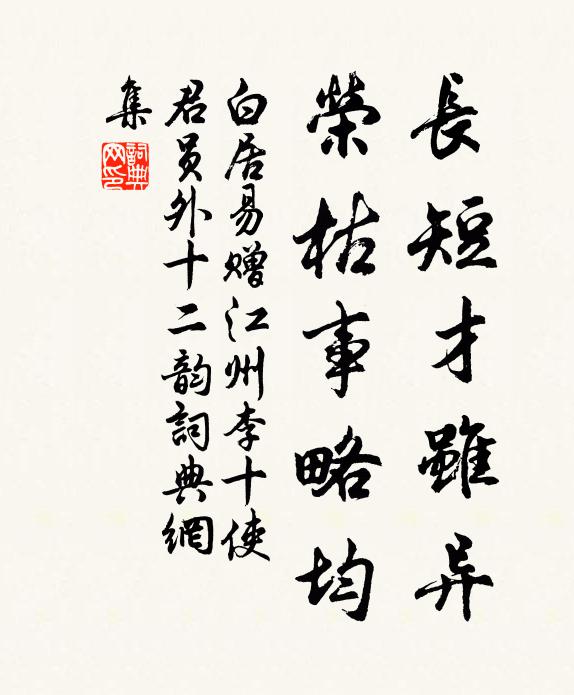 長短才雖异
榮枯事略均
白居易贈江州李十使
君員外十二韵詞典網
集
詞典
网印